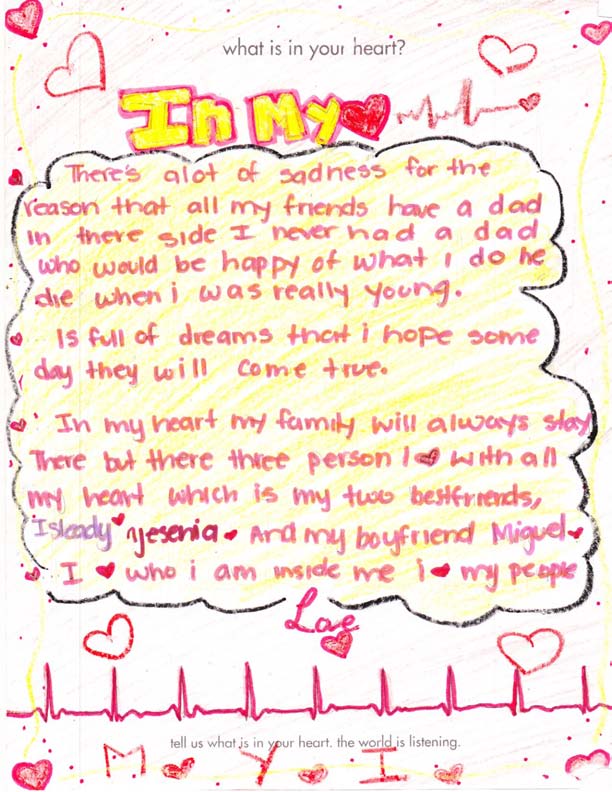 what is in your heart?
In My
There's alot of sadness for the
reason that all my friends have a dad
in there side I never had a dad
who would be happy of what i do he
die when i was really young.
Is full of dreams that i hope some
day they will come true.
In my heart my family will always stay
There but there three person I ❤ with all
my heart which is my two bestfriends,
Isleady Yesenia ❤ And my boyfriend Miguel
I ❤ who i am inside me i ❤ my people
Love
tell us what is in your heart. the world is listening.
M ❤ Y ❤ I ❤